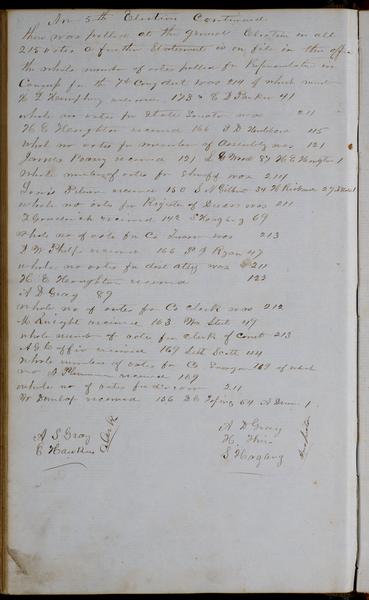 Nov 5th Election Continued
there was polled at the general Election in all
215 votes a further Statement is on file in the office
the whole number of votes polled for Representative in
Congress for the 7th Cong dist was 214 of which number
H L Humphry received 173 & C D Parker 41
whole no votes for State Senator was 211
H E Houghton received 166 115
whol no votes for member of Assembly was 121
James received 121 L S Wood 89 H E Houghton 1
Whole number of votes for Sheriff was 214
Louis received 150 S N Gilbert 34 H 27
whole no of vote for Register of Deeds was 211
F received 142 S Hagberg 69
whole no of vote for Co Treasurer was 213
J W Phelps received 166 P J Ryan 47
whole no votes for dist Atty was 211
H E Houghton received 122
A D Gray 89
whole no of votes for Co Clerk was 212
M Knight received 163 Wm Steel 49
whole number of vote for Clerk of Court 213
A G Coffin received 169 Seth Scott 44
whole number of votes for Co Surveyor 169 of which
no A received 169
whole no of votes for Coroner 211
W Dunlap received 156 D C 54 A 1
A S Gray
E Hawkins
Clerks
A D Gray
H.
S Hagberg